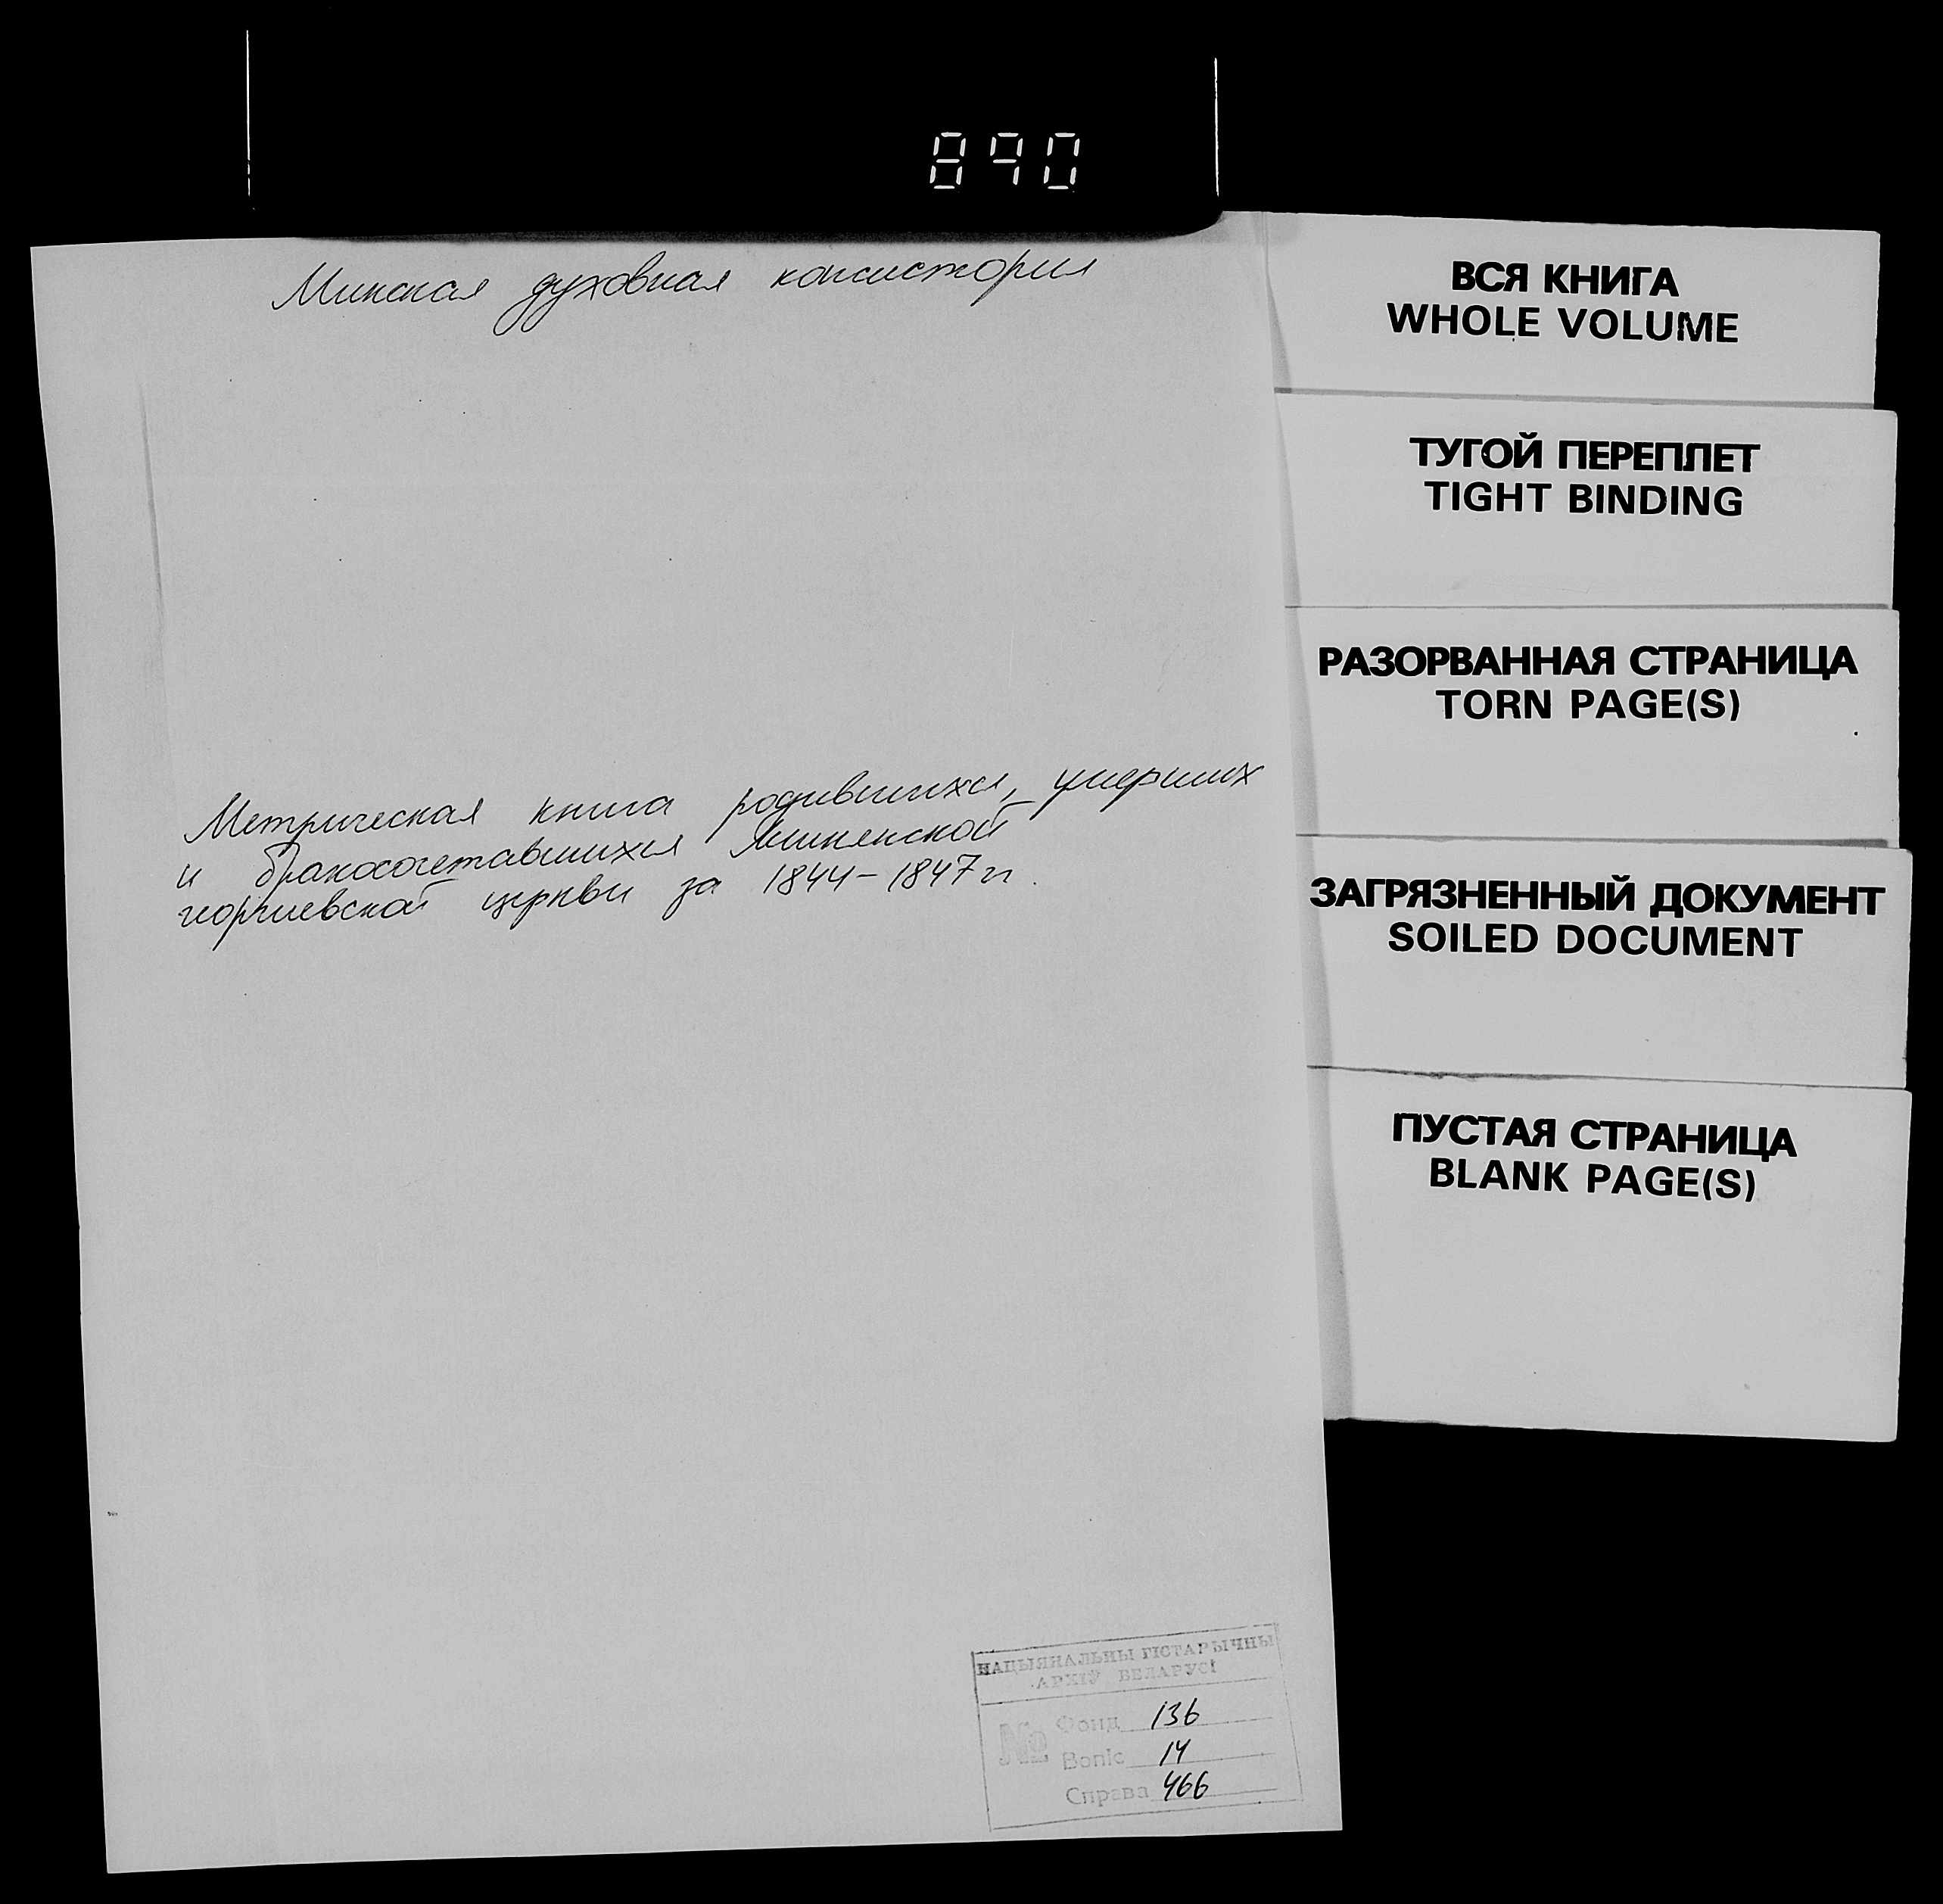 890
Минская духовная консистория
Метрическая книга родившихся, умерших
и бракосочетавшихся
георгиевской церкви за 1844-1847 гг.
НАЦЫЯНАЛЬНЫ ГІСТАРЫЧНЫ
АРХІЎ БЕЛАРУСІ
№ Фонд 136
Вопіс 14
Справа 466
ВСЯ КНИГА
WHOLE VOLUME
ТУГОЙ ПЕРЕПЛЕТ
TIGHT BINDING
РАЗОРВАННАЯ СТРАНИЦА
TORN PAGE(S)
ЗАГРЯЗНЕННЫЙ ДОКУМЕНТ
SOILED DOCUMENT
ПУСТАЯ СТРАНИЦА
BLANK PAGE(S)